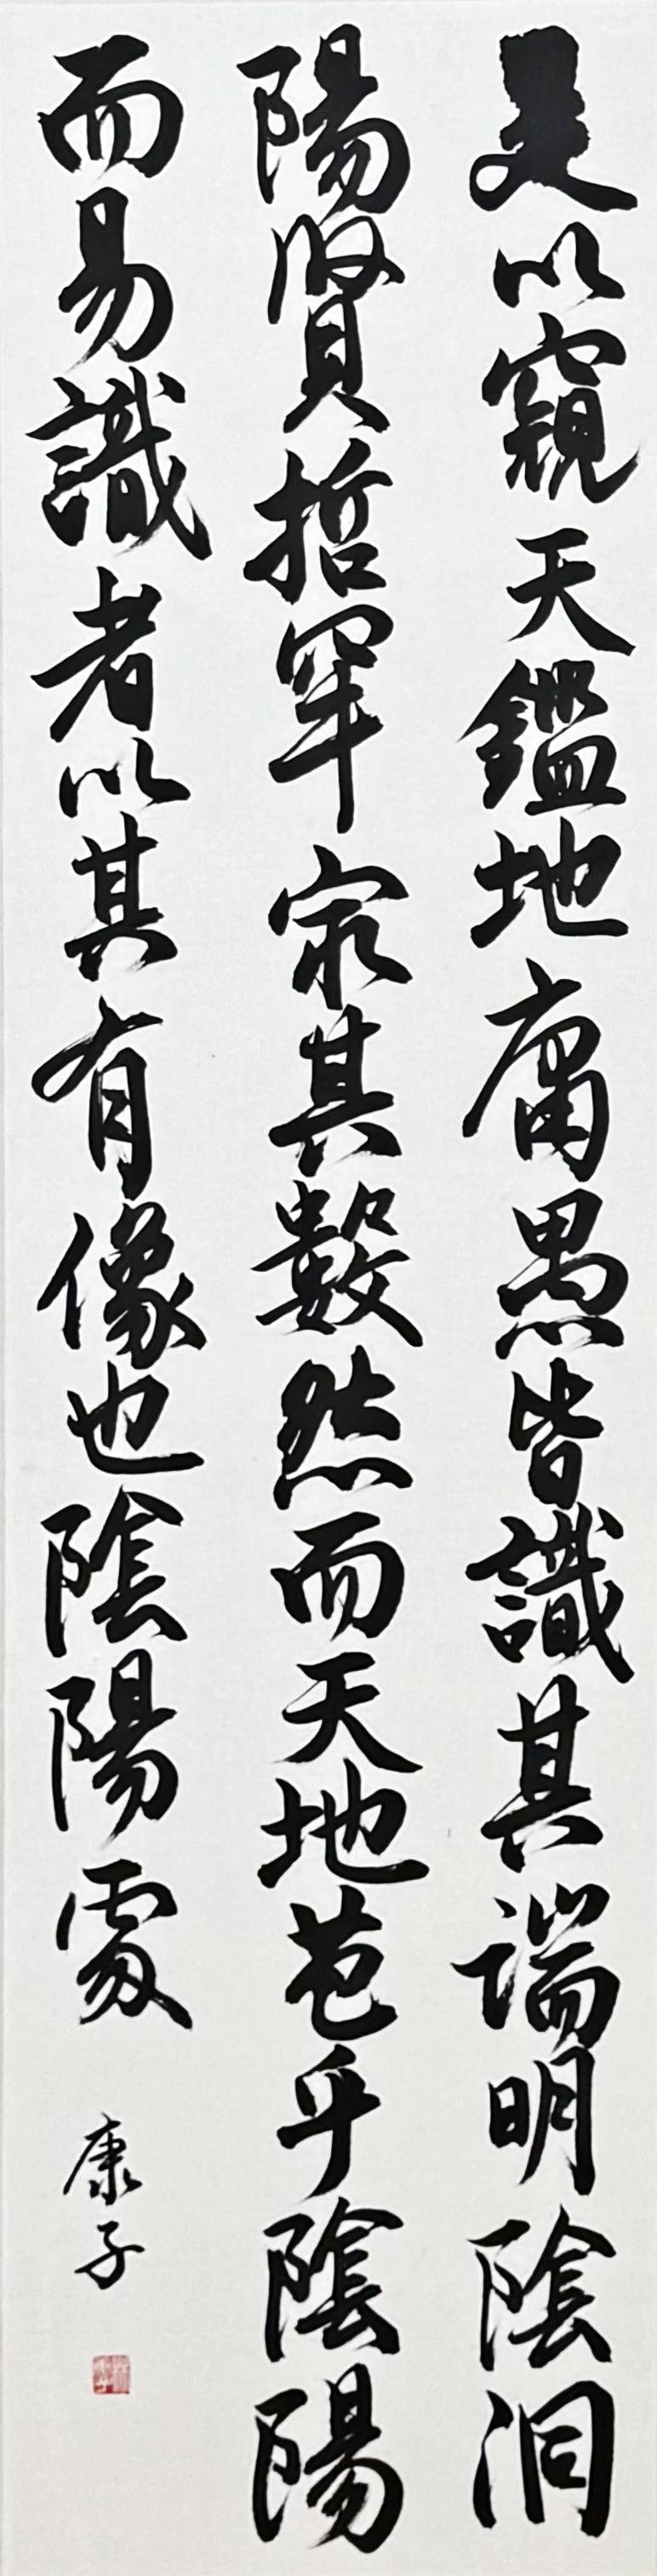 是以窺天鑑地庸愚皆識其端明陰洞
陽賢哲罕窮其數然而天地苞乎陰陽
而易識者以其有像也陰陽處
康子